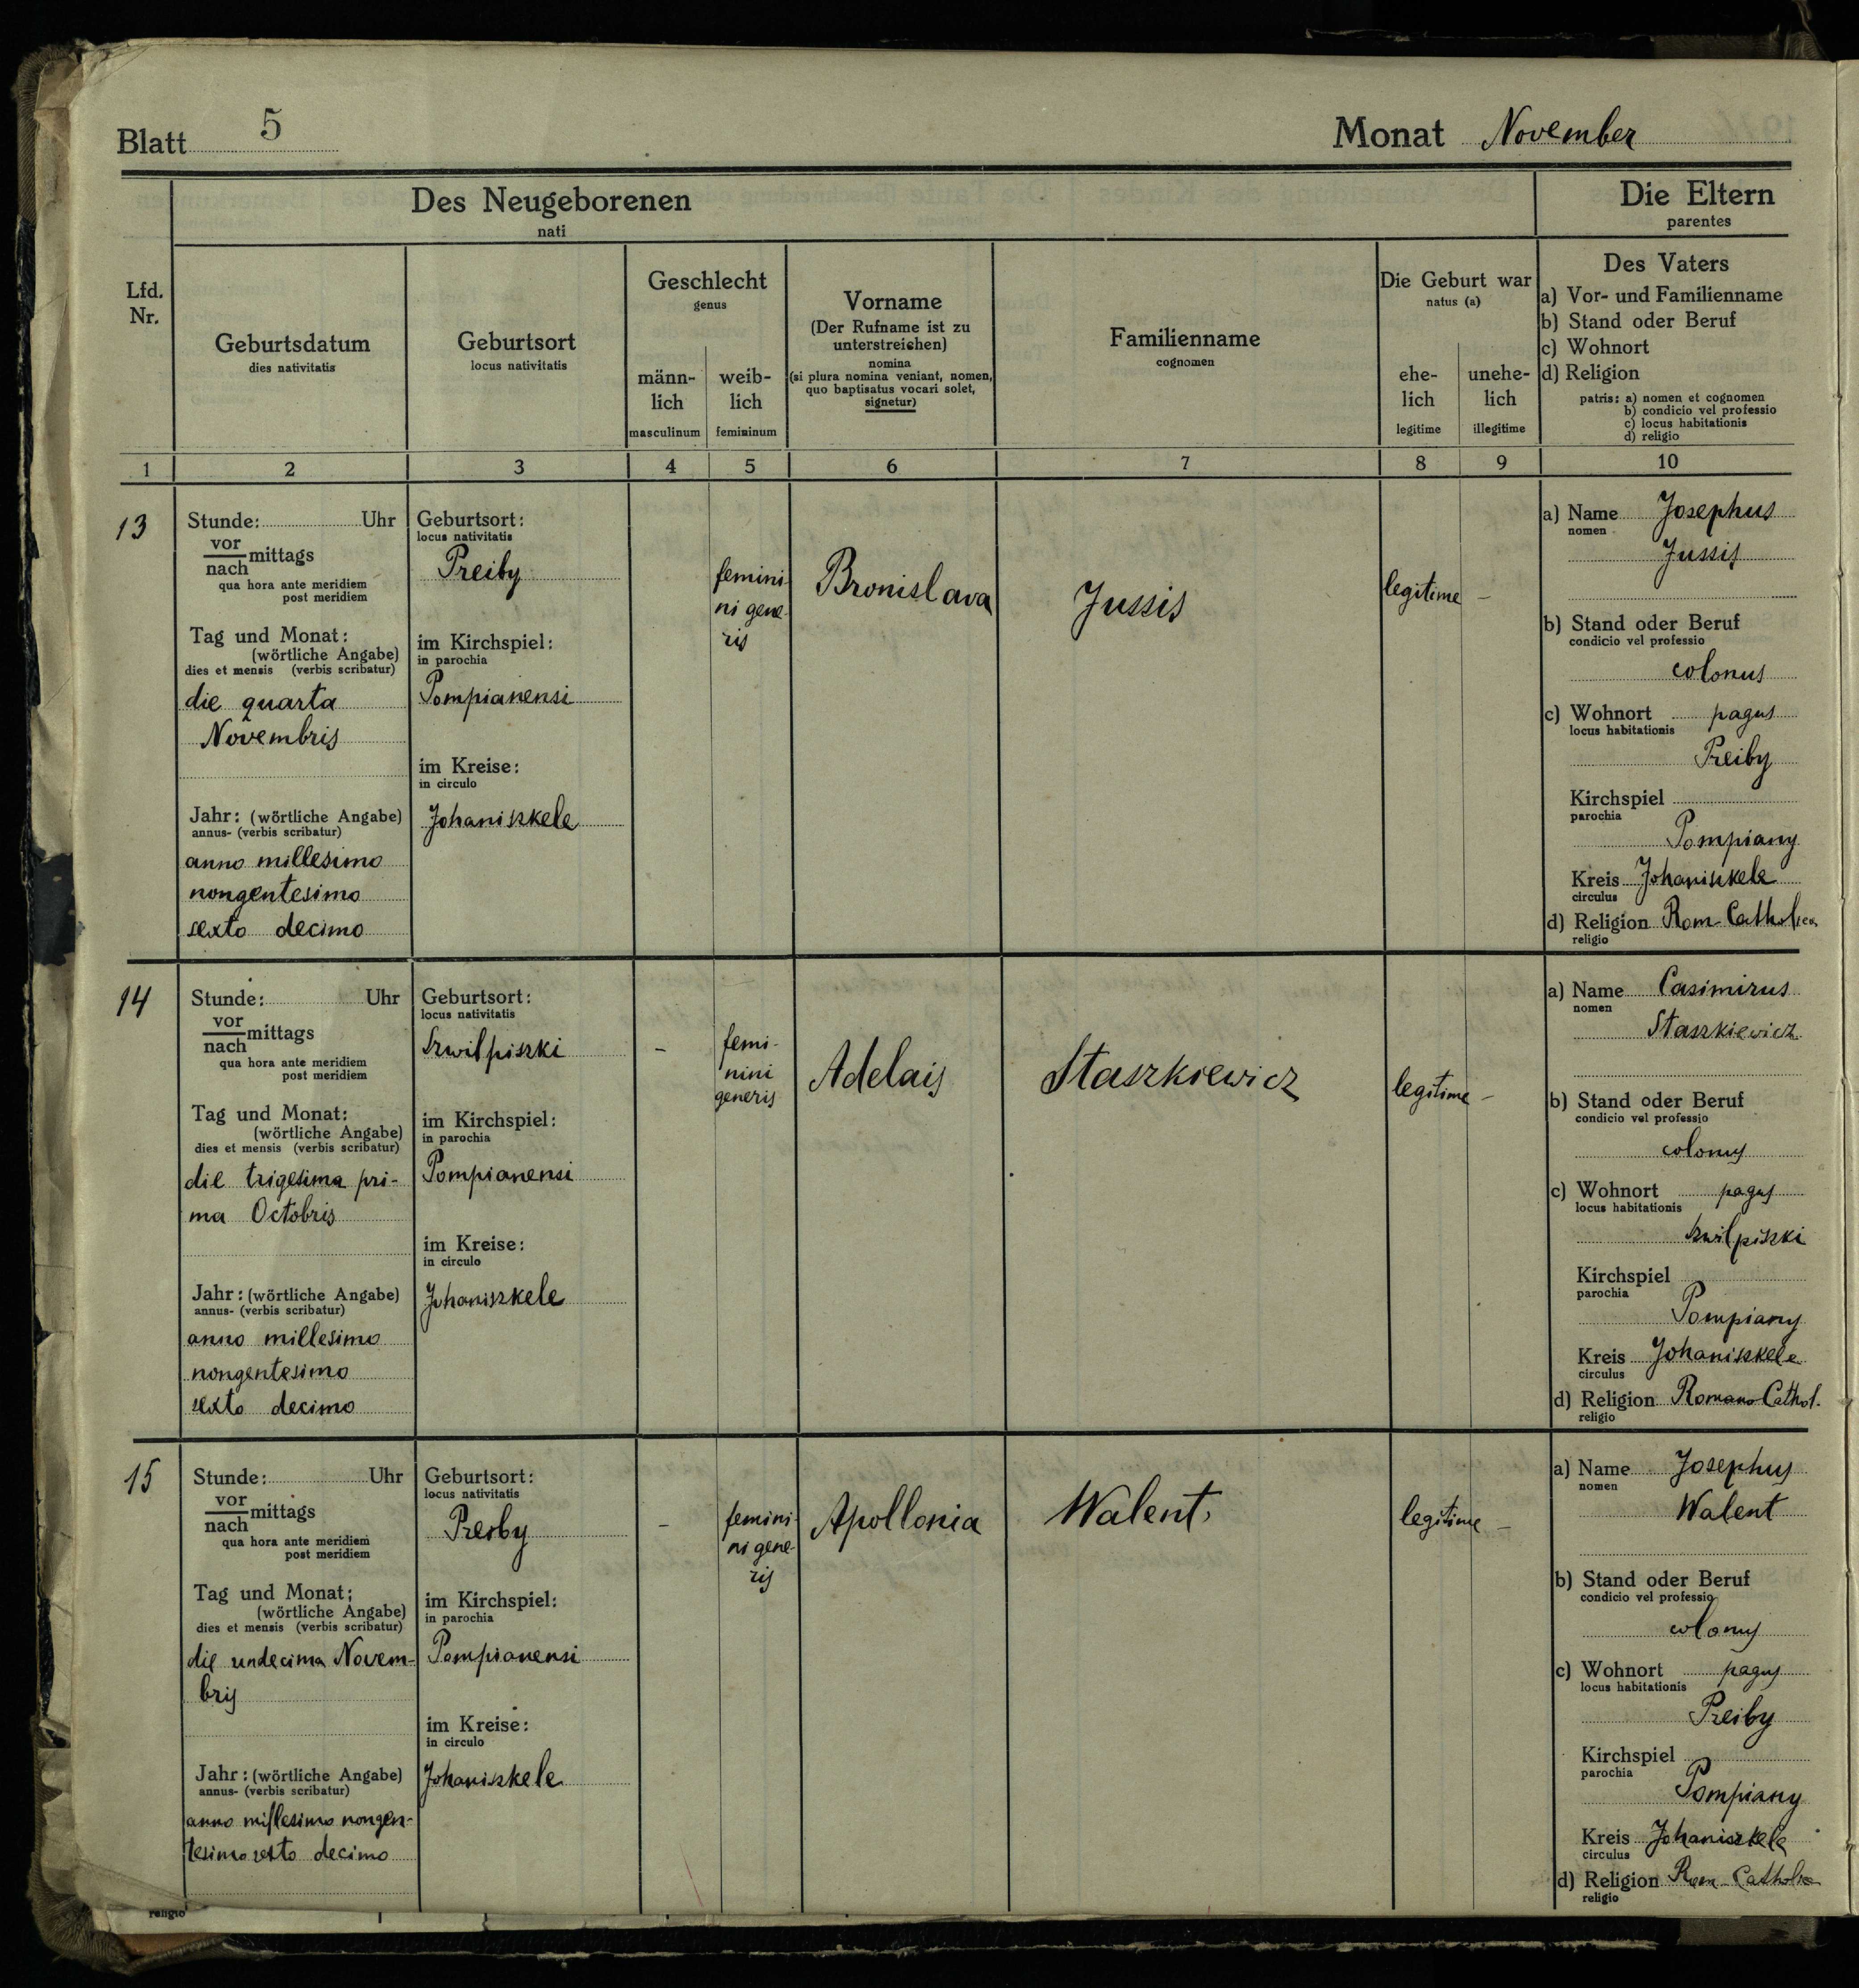 Blatt 5
Monat November
Des Neugeborenen
nati
Die Eltern
parentes
Lfd.
Nr.
Geburtsdatum
dies nativitatis
Geburtsort
locus nativitatis
Geschlecht
genus
männ-
lich
masculinum
weib-
lich
femininum
Vorname
(Der Rufname ist zu
unterstreichen)
nomina
(si plura nomina veniant, nomen,
quo baptisatus vocari solet,
signetur)
Familienname
cognomen
Die Geburt war
natus (a)
ehe-
lich
legitime
unehe-
lich
illegitime
Des Vaters
a) Vor- und Familienname
b) Stand oder Beruf
c) Wohnort
d) Religion
patris: a) nomen et cognomen
b) condicio vel professio
c) locus habitationis
d) religio
1 2 3 4 5 6 7 8 9 10
13
Stunde: Uhr
vor
nach mittags
qua hora ante meridiem
post meridiem
Tag und Monat:
(wörtliche Angabe)
dies et mensis (verbis scribatur)
die quarta
Novembris
Jahr: (wörtliche Angabe)
annus- (verbis scribatur)
anno millesimo
nongentesimo
sexto decimo
Geburtsort:
locus nativitatis
Preiby
im Kirchspiel:
in parochia
Pompianensi
im Kreise:
in circulo
Johaniszkele
femini
ni gene-
ris
Bronislava
Jussis
legitime -
a) Name Josephus
nomen
Jussis
b) Stand oder Beruf
condicio vel professio
colonus
c) Wohnort pagus
locus habitationis
Preiby
Kirchspiel
parochia
Pompiany
Kreis Johaniszkele
circulus
d) Religion Rom-Catholica
religio
14
Stunde: Uhr
vor
nach mittags
qua hora ante meridiem
post meridiem
Tag und Monat:
(wörtliche Angabe)
dies et mensis (verbis scribatur)
die trigesima pri-
ma Octobris
Jahr: (wörtliche Angabe)
annus- (verbis scribatur)
anno millesimo
nongentesimo
sexto decimo
Geburtsort:
locus nativitatis
Szwilpiszki
im Kirchspiel:
in parochia
Pompianensi
im Kreise:
in circulo
Johaniszkele
-
femi-
nini
generis
Adelais
Staszkiewicz
legitime -
a) Name Casimirus
nomen
Staszkiewicz
b) Stand oder Beruf
condicio vel professio
colonus
c) Wohnort pagus
locus habitationis
Szwilpiszki
Kirchspiel
parochia
Pompiany
Kreis Johaniszkele
circulus
d) Religion Romano Cathol.
religio
15
Stunde: Uhr
vor
nach mittags
qua hora ante meridiem
post meridiem
Tag und Monat;
(wörtliche Angabe)
dies et mensis (verbis scribatur)
die undecima Novem-
bris
Jahr: (wörtliche Angabe)
annus- (verbis scribatur)
anno millesimo nongen-
tesimo sexto decimo
Geburtsort:
locus nativitatis
Preiby
im Kirchspiel:
in parochia
Pompianensi
im Kreise:
in circulo
Johaniszkele
-
femini
ni gene-
ris
Apollonia
Walent.
legitime -
a) Name Josephus
nomen
Walent
b) Stand oder Beruf
condicio vel professio
colonus
c) Wohnort pagus
locus habitationis
Preiby
Kirchspiel
parochia
Pompiany
Kreis Johaniszkele
circulus
d) Religion Rom-Catholica
religio
religio